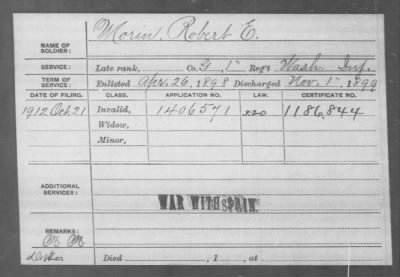 NAME OF SOLDIER: Morin, Robert E.
SERVICE: Late rank, Co. G, 1" Reg't Wash. Inf.
TERM OF SERVICE: Enlisted Apr. 26, 1898 Discharged Nov. 1", 1899
DATE OF FILING. CLASS. APPLICATION NO. LAW. CERTIFICATE NO.
1912 Oct. 21 Invalid, 1406571 1186844
Widow,
Minor,
ADDITIONAL SERVICES: WAR WITH SPAIN.
REMARKS:
Died , 1 , at